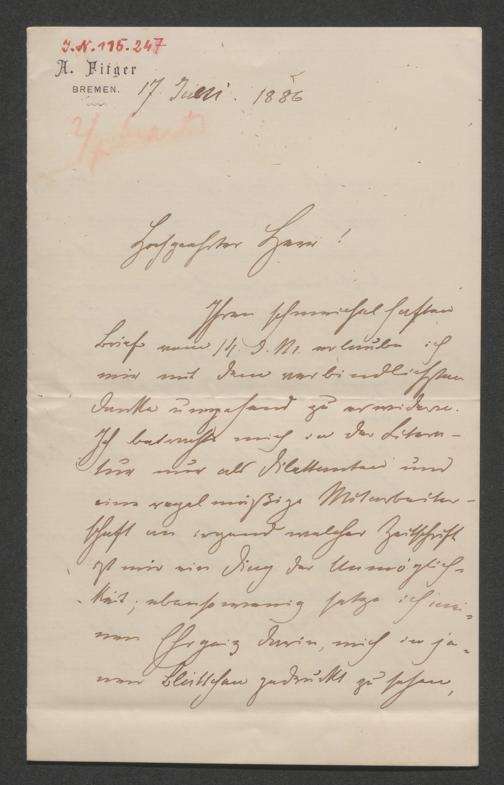 I.N. 115.247
A. Fitger
BREMEN.
17 Juli. 1886
Hochgeehrter Herr!
Ihren schmeichelhaften
Brief vom 14. d. M. erlaube ich
mir mit dem verbindlichsten
Danke umgehend zu erwidern.
Ich betrachte mich in der Litera-
tur nur als Dilettanten und
eine regelmäßige Mitarbeiter-
schaft an irgend welcher Zeitschrift
ist mir ein Ding der Unmöglich-
keit; ebensowenig setze ich mei-
nen Ehrgeiz darin, mich in je-
nem gedruckt zu sehen,